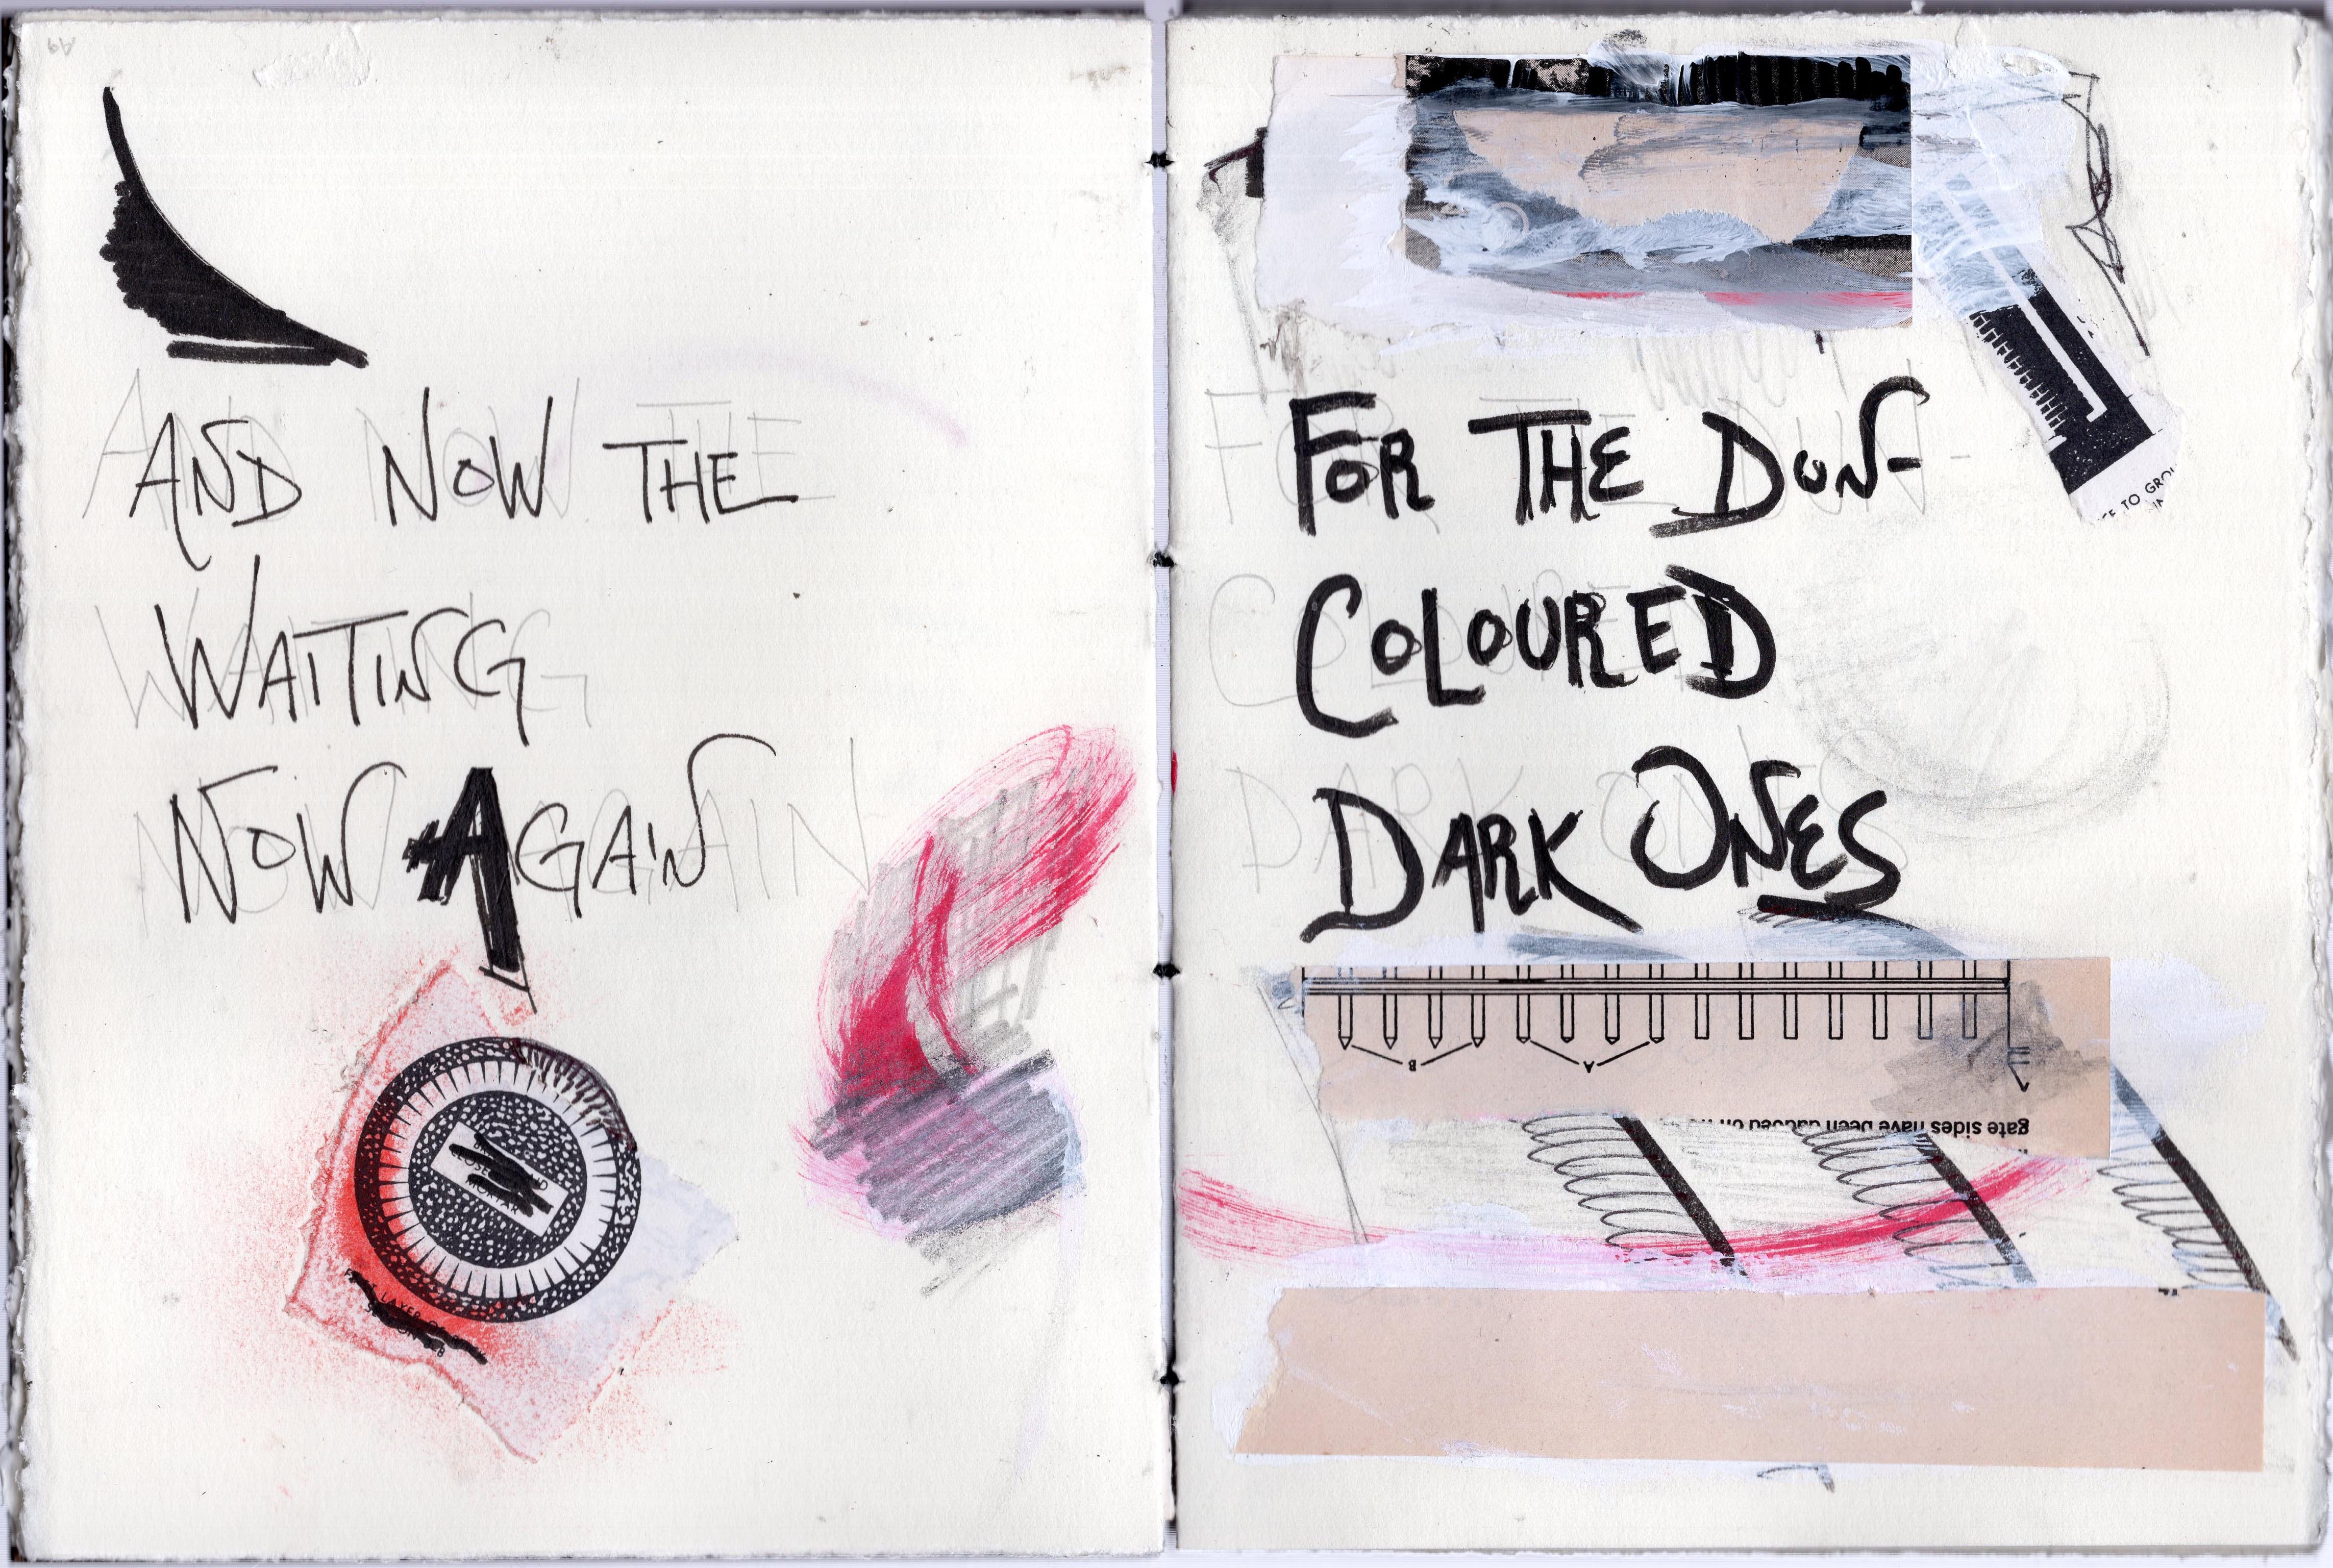 AND NOW THE
WAITING
NOW AGAIN
FOR THE DUN-
COLOURED
DARK ONES
TO
B
A
gate sides have been